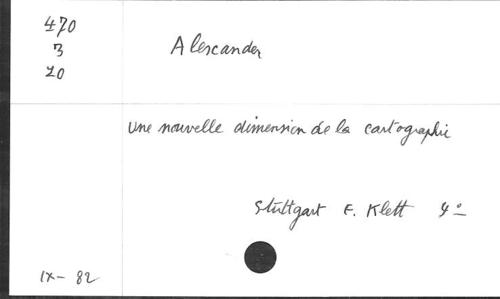 470
3
20
Alexander
Une nouvelle dimension de la cartographie
Stuttgart E. Klett 4°
IX- 82